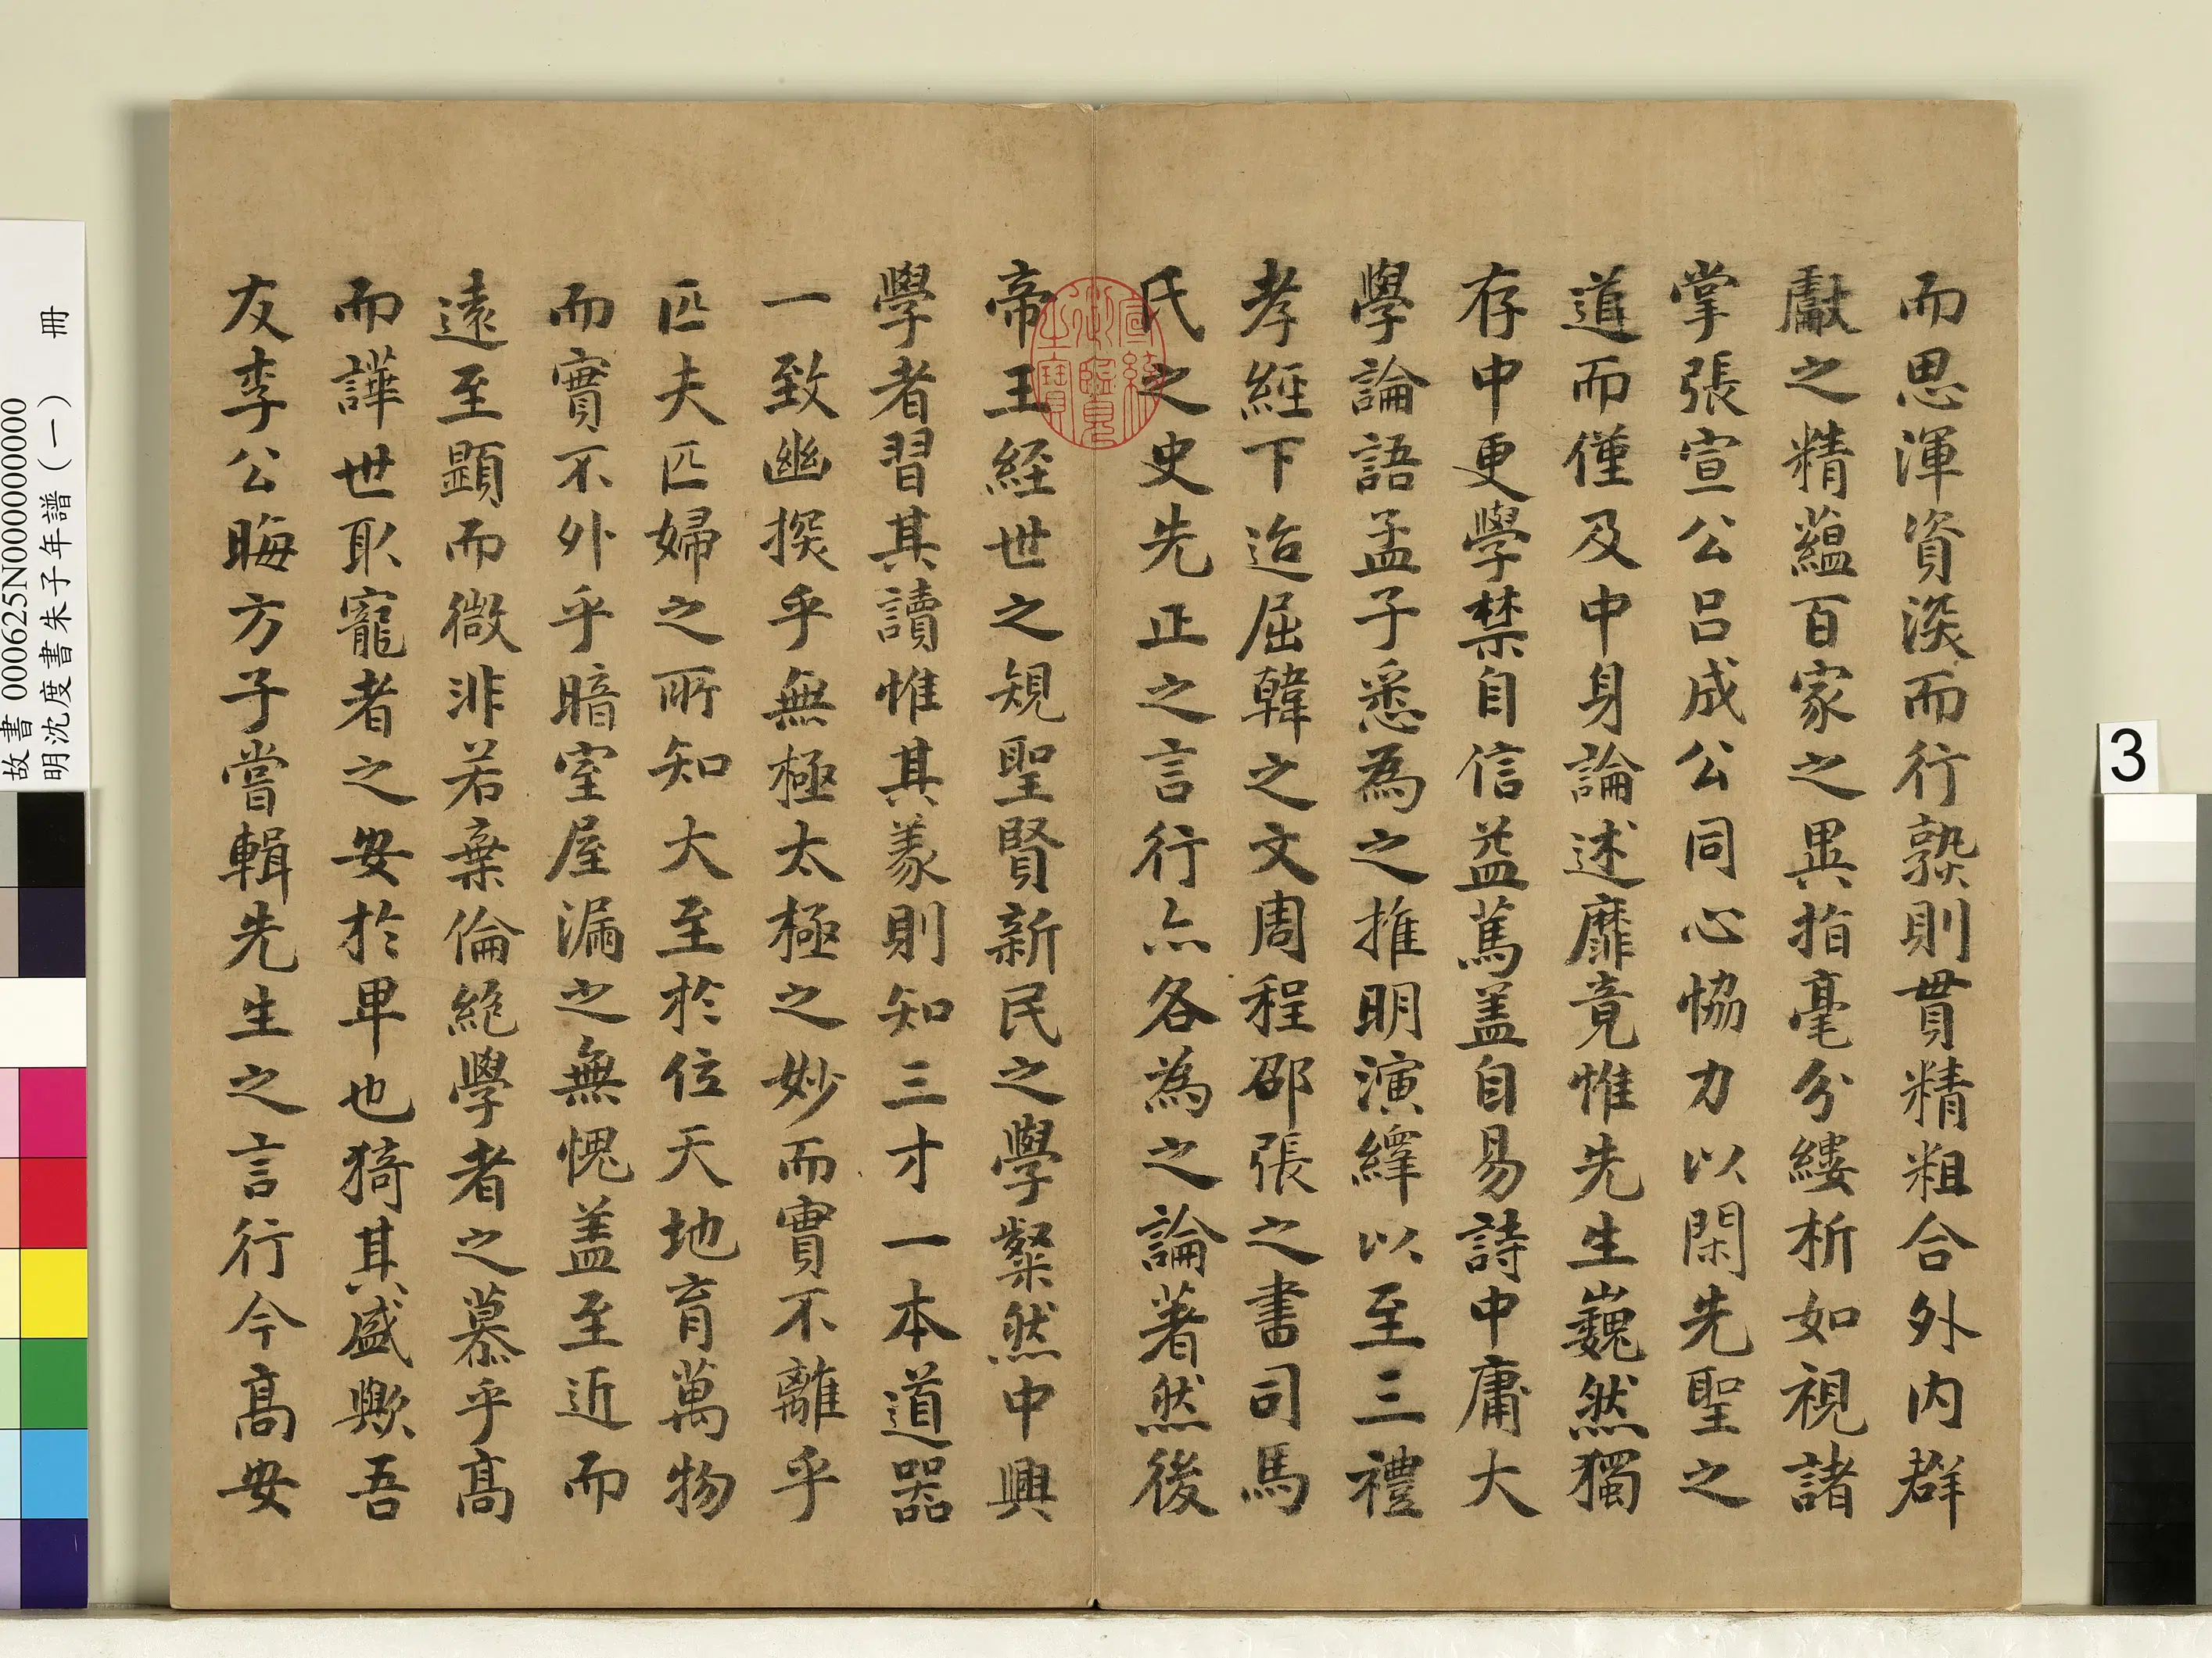 而思渾資深而行熟則貫精粗合外内群
獻之精蘊百家之異指毫分縷析如視諸
掌張宣公呂成公同心恊力以閑先聖之
道而僅及中身論述靡竟惟先生巍然獨
存中更學禁自信益篤盖自易詩中庸大
學論語孟子悉為之推明演繹以至三禮
孝經下迨屈韓之文周程邵張之書司馬
氏之史先正之言行亦各為之論著然後
帝王経世之規聖賢新民之學粲然中興
學者習其讀惟其義則知三才一本道器
一致幽探乎無極太極之妙而實不離乎
匹夫匹婦之所知大至於位天地育萬物
而實不外乎暗室屋漏之無愧盖至近而
遠至顕而微非若棄倫絶學者之慕乎髙
而譁世取寵者之安於卑也猗其盛歟吾
友李公晦方子嘗輯先生之言行今髙安
宣統御覽之寶
故書 000625N000000000
明沈度書朱子年譜（一） 冊
3